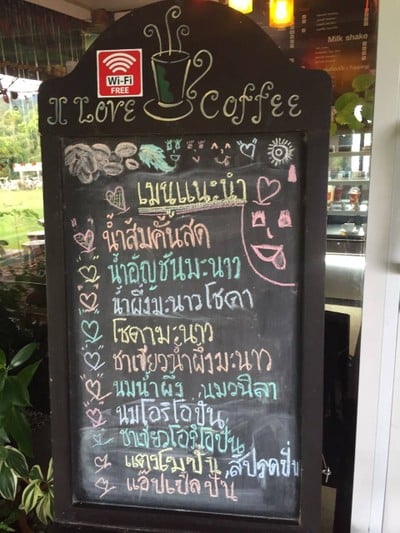 Milk shake
Wi-Fi
FREE
I LOVE Coffee
เมนูแนะนำ
น้ำส้มคั้นสด
น้ำอัญชันมะนาว
น้ำผึ้งมะนาวโซดา
โซดามะนาว
ชาเขียวน้ำผึ้งมะนาว
นมน้ำผึ้ง นมวนิลา
นมโอริโอปั่น
ชาเขียวโอริโอปั่น
แตงโมปั่น, สัปรดปั่น
แอ๊ปเปิ้ลปั่น